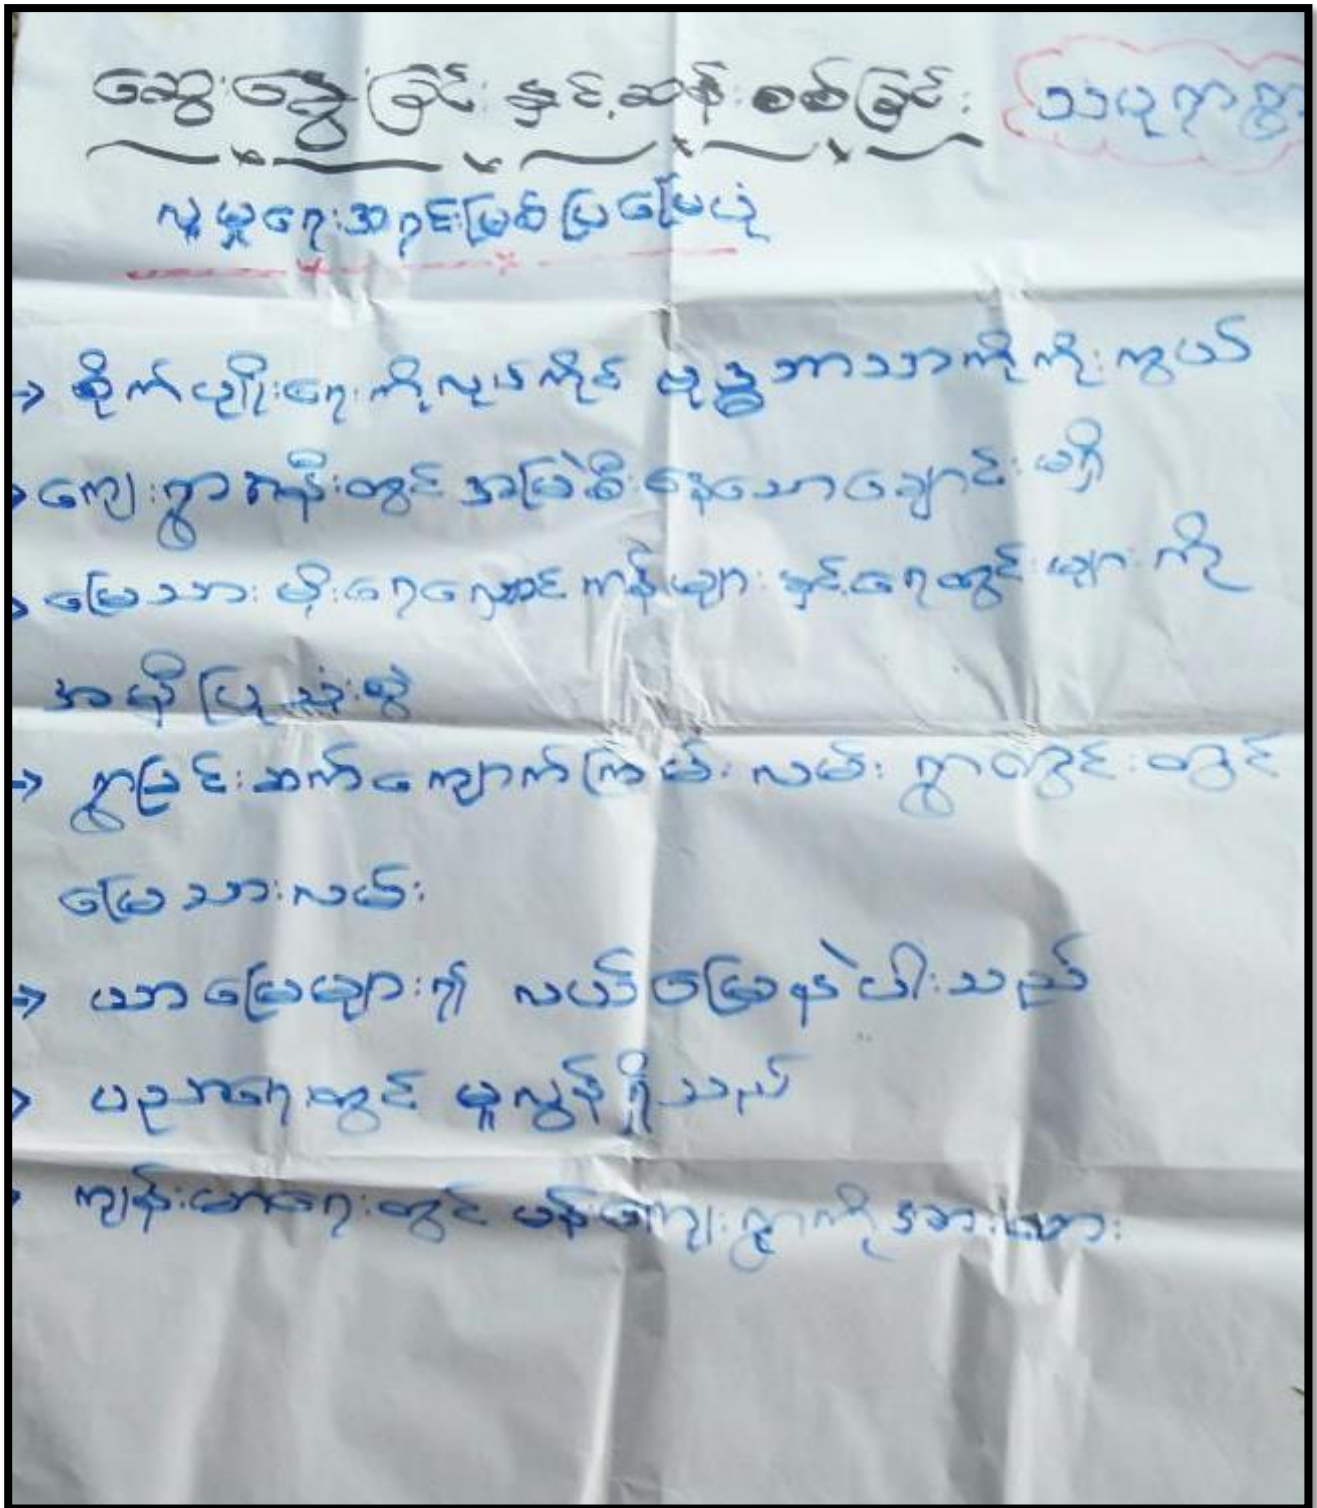 ဆွေးနွေးခြင်းနှင့်ဆန်းစစ်ခြင်း သဃုရာရွာ
လူမှုရေးအရင်းမြစ်ပြမြေပုံ
→ စိုက်ပျိုးရေးကိုလုပ်ကိုင် ဗုဒ္ဓဘာသာကိုကိုးကွယ်
→ ကျေးရွာအနီးတွင် အမြဲစီးနေသောချောင်းမရှိ
→ မြေသားမိုးရေလှောင်ကန်များနှင့်ရေတွင်းများကို
အမှီပြုသုံးစွဲ
→ ရွာပြင်းဆက်ကျောက်ကြမ်းလမ်း ရွာတွင်းတွင်
မြေသားလမ်း
→ ယာမြေများ၍ လယ်မြေနဲပါးသည်
→ ပညာရေးတွင် မူလွန်ရှိသည်
→ ကျန်းမာရေးတွင် မန်ကျေးရွာကိုအားထား